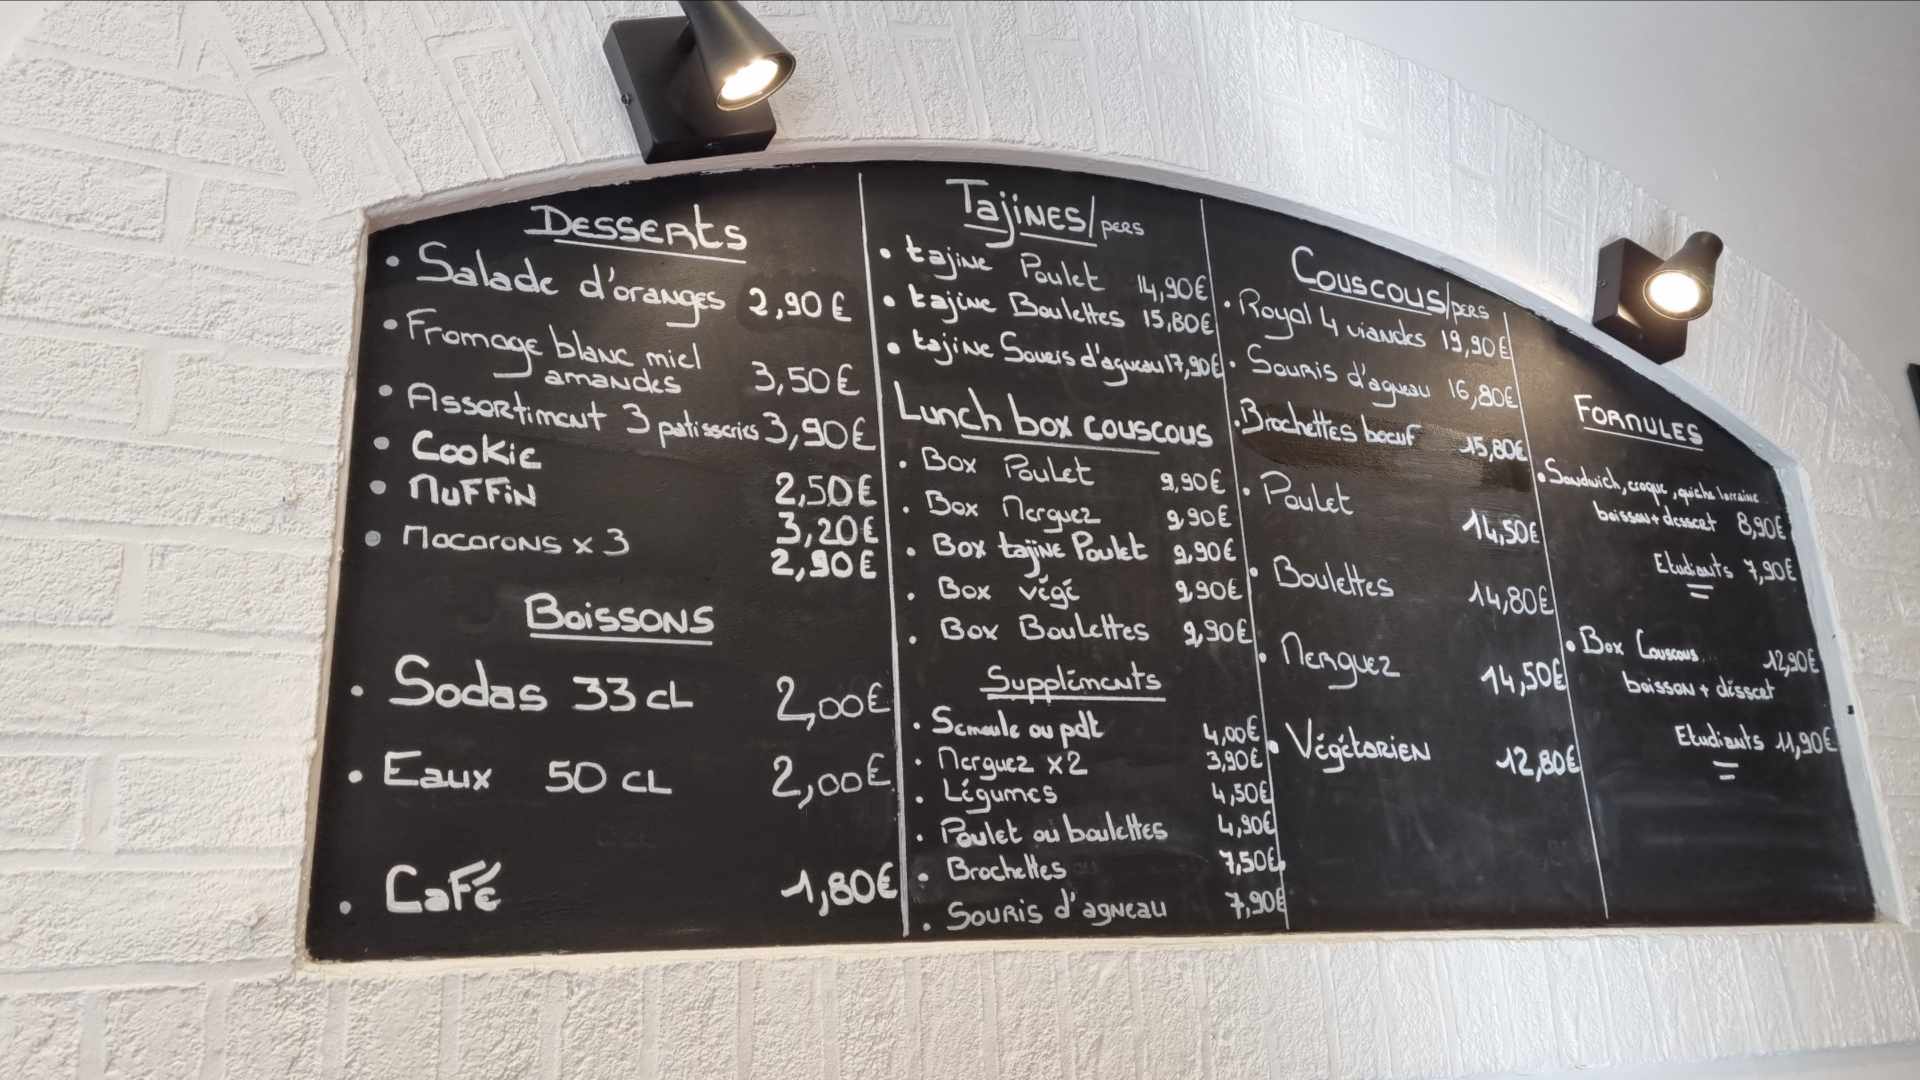 Desserts
• Salade d'oranges 2,90€
• Fromage blanc miel
amandes 3,50€
• Assortiment 3 patisseries 3,90€
• Cookie 2,50€
• Muffin 3,20€
• Macarons x 3 2,90€
Boissons
• Sodas 33 cL 2,00€
• Eaux 50 cL 2,00€
• Café 1,80€
Tajines/pers
• tajine Poulet 14,90€
• tajine Boulettes 15,80€
• tajine Souris d'agneau 17,90€
Lunch box couscous
• Box Poulet 9,90€
• Box Merguez 9,90€
• Box tajine Poulet 9,90€
• Box végé 9,90€
• Box Boulettes 9,90€
Suppléments
• Semoule ou pdt 4,00€
• Merguez x2 3,90€
• Légumes 4,50€
• Poulet ou boulettes 4,90€
• Brochettes 7,50€
• Souris d'agneau 7,90€
Couscous/pers
• Royal 4 viandes 19,90€
• Souris d'agneau 16,80€
• Brochettes boeuf 15,80€
• Poulet 14,50€
• Boulettes 14,80€
• Merguez 14,50€
• Végétarien 12,80€
Formules
• Sandwich, croque, quiche lorraine
boisson + dessert 8,90€
Etudiants 7,90€
• Box Couscous 12,90€
boisson + déssert
Etudiants 11,90€